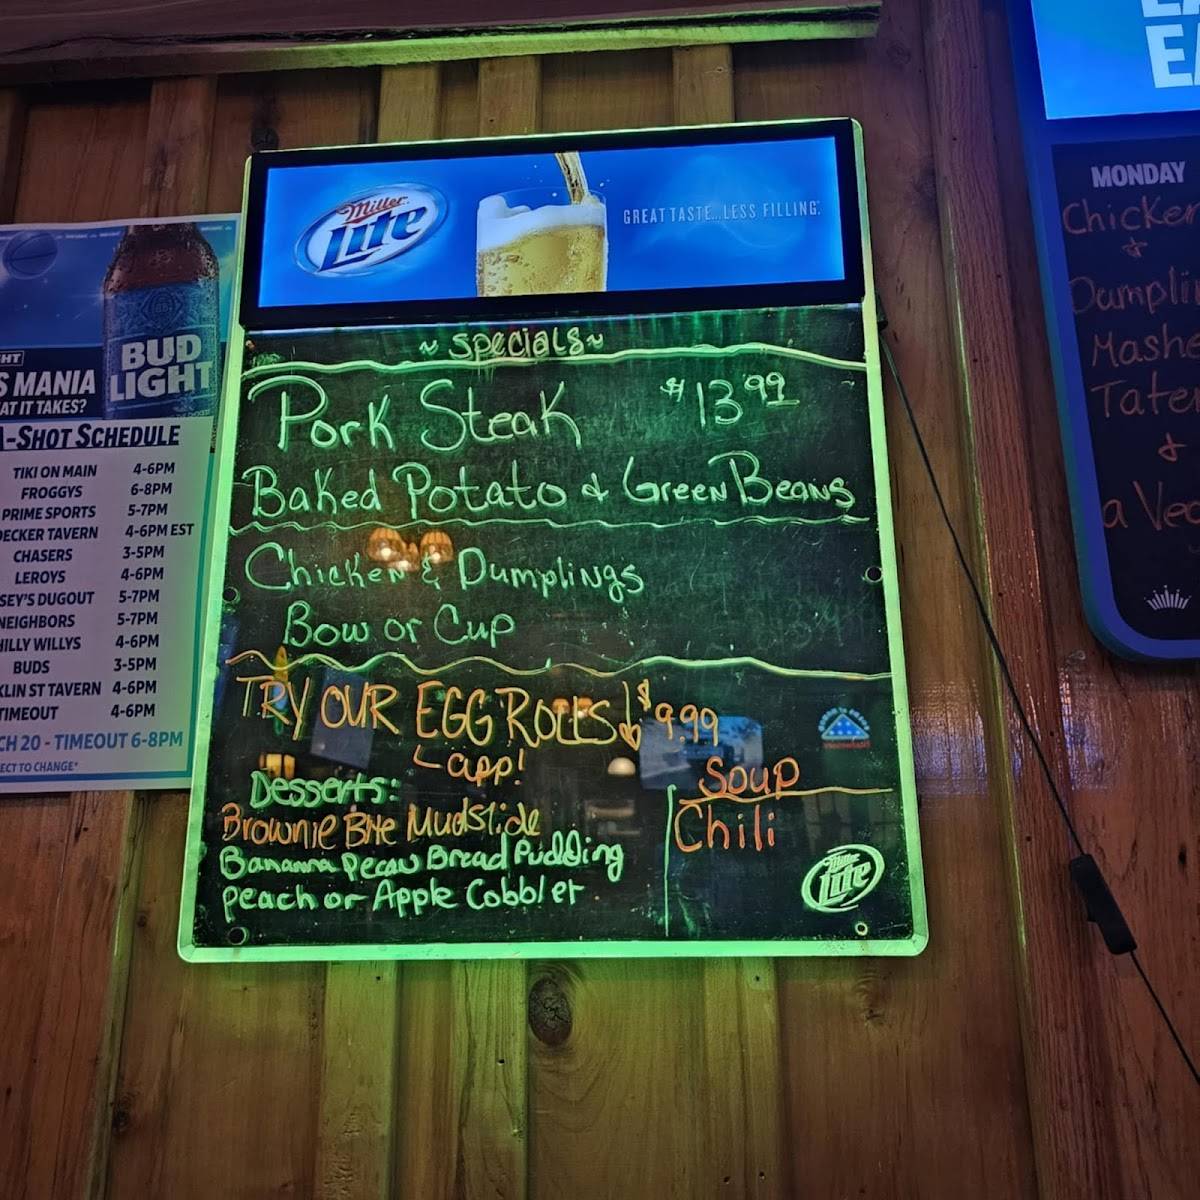 Miller
Lite
GREAT TASTE...LESS FILLING.
~ Specials ~
Pork Steak $13.99
Baked Potato & Green Beans
Chicken & Dumplings
Bow or Cup
TRY OUR EGG ROLLS $9.99
app!
Desserts:
Brownie Bite Mudslide
Bananna Pecan Bread Pudding
Peach or Apple Cobbler
Soup
Chili
Miller
Lite
BUD
LIGHT
MANIA
IT TAKES?
-SHOT SCHEDULE
TIKI ON MAIN 4-6PM
FROGGYS 6-8PM
PRIME SPORTS 5-7PM
DECKER TAVERN 4-6PM EST
CHASERS 3-5PM
LEROYS 4-6PM
SEY'S DUGOUT 5-7PM
NEIGHBORS 5-7PM
HILLY WILLYS 4-6PM
BUDS 3-5PM
KLIN ST TAVERN 4-6PM
TIMEOUT 4-6PM
CH 20 - TIMEOUT 6-8PM
ECT TO CHANGE*
MONDAY
Chicken
&
Dumplin
Mashe
Tater
&
a Veg